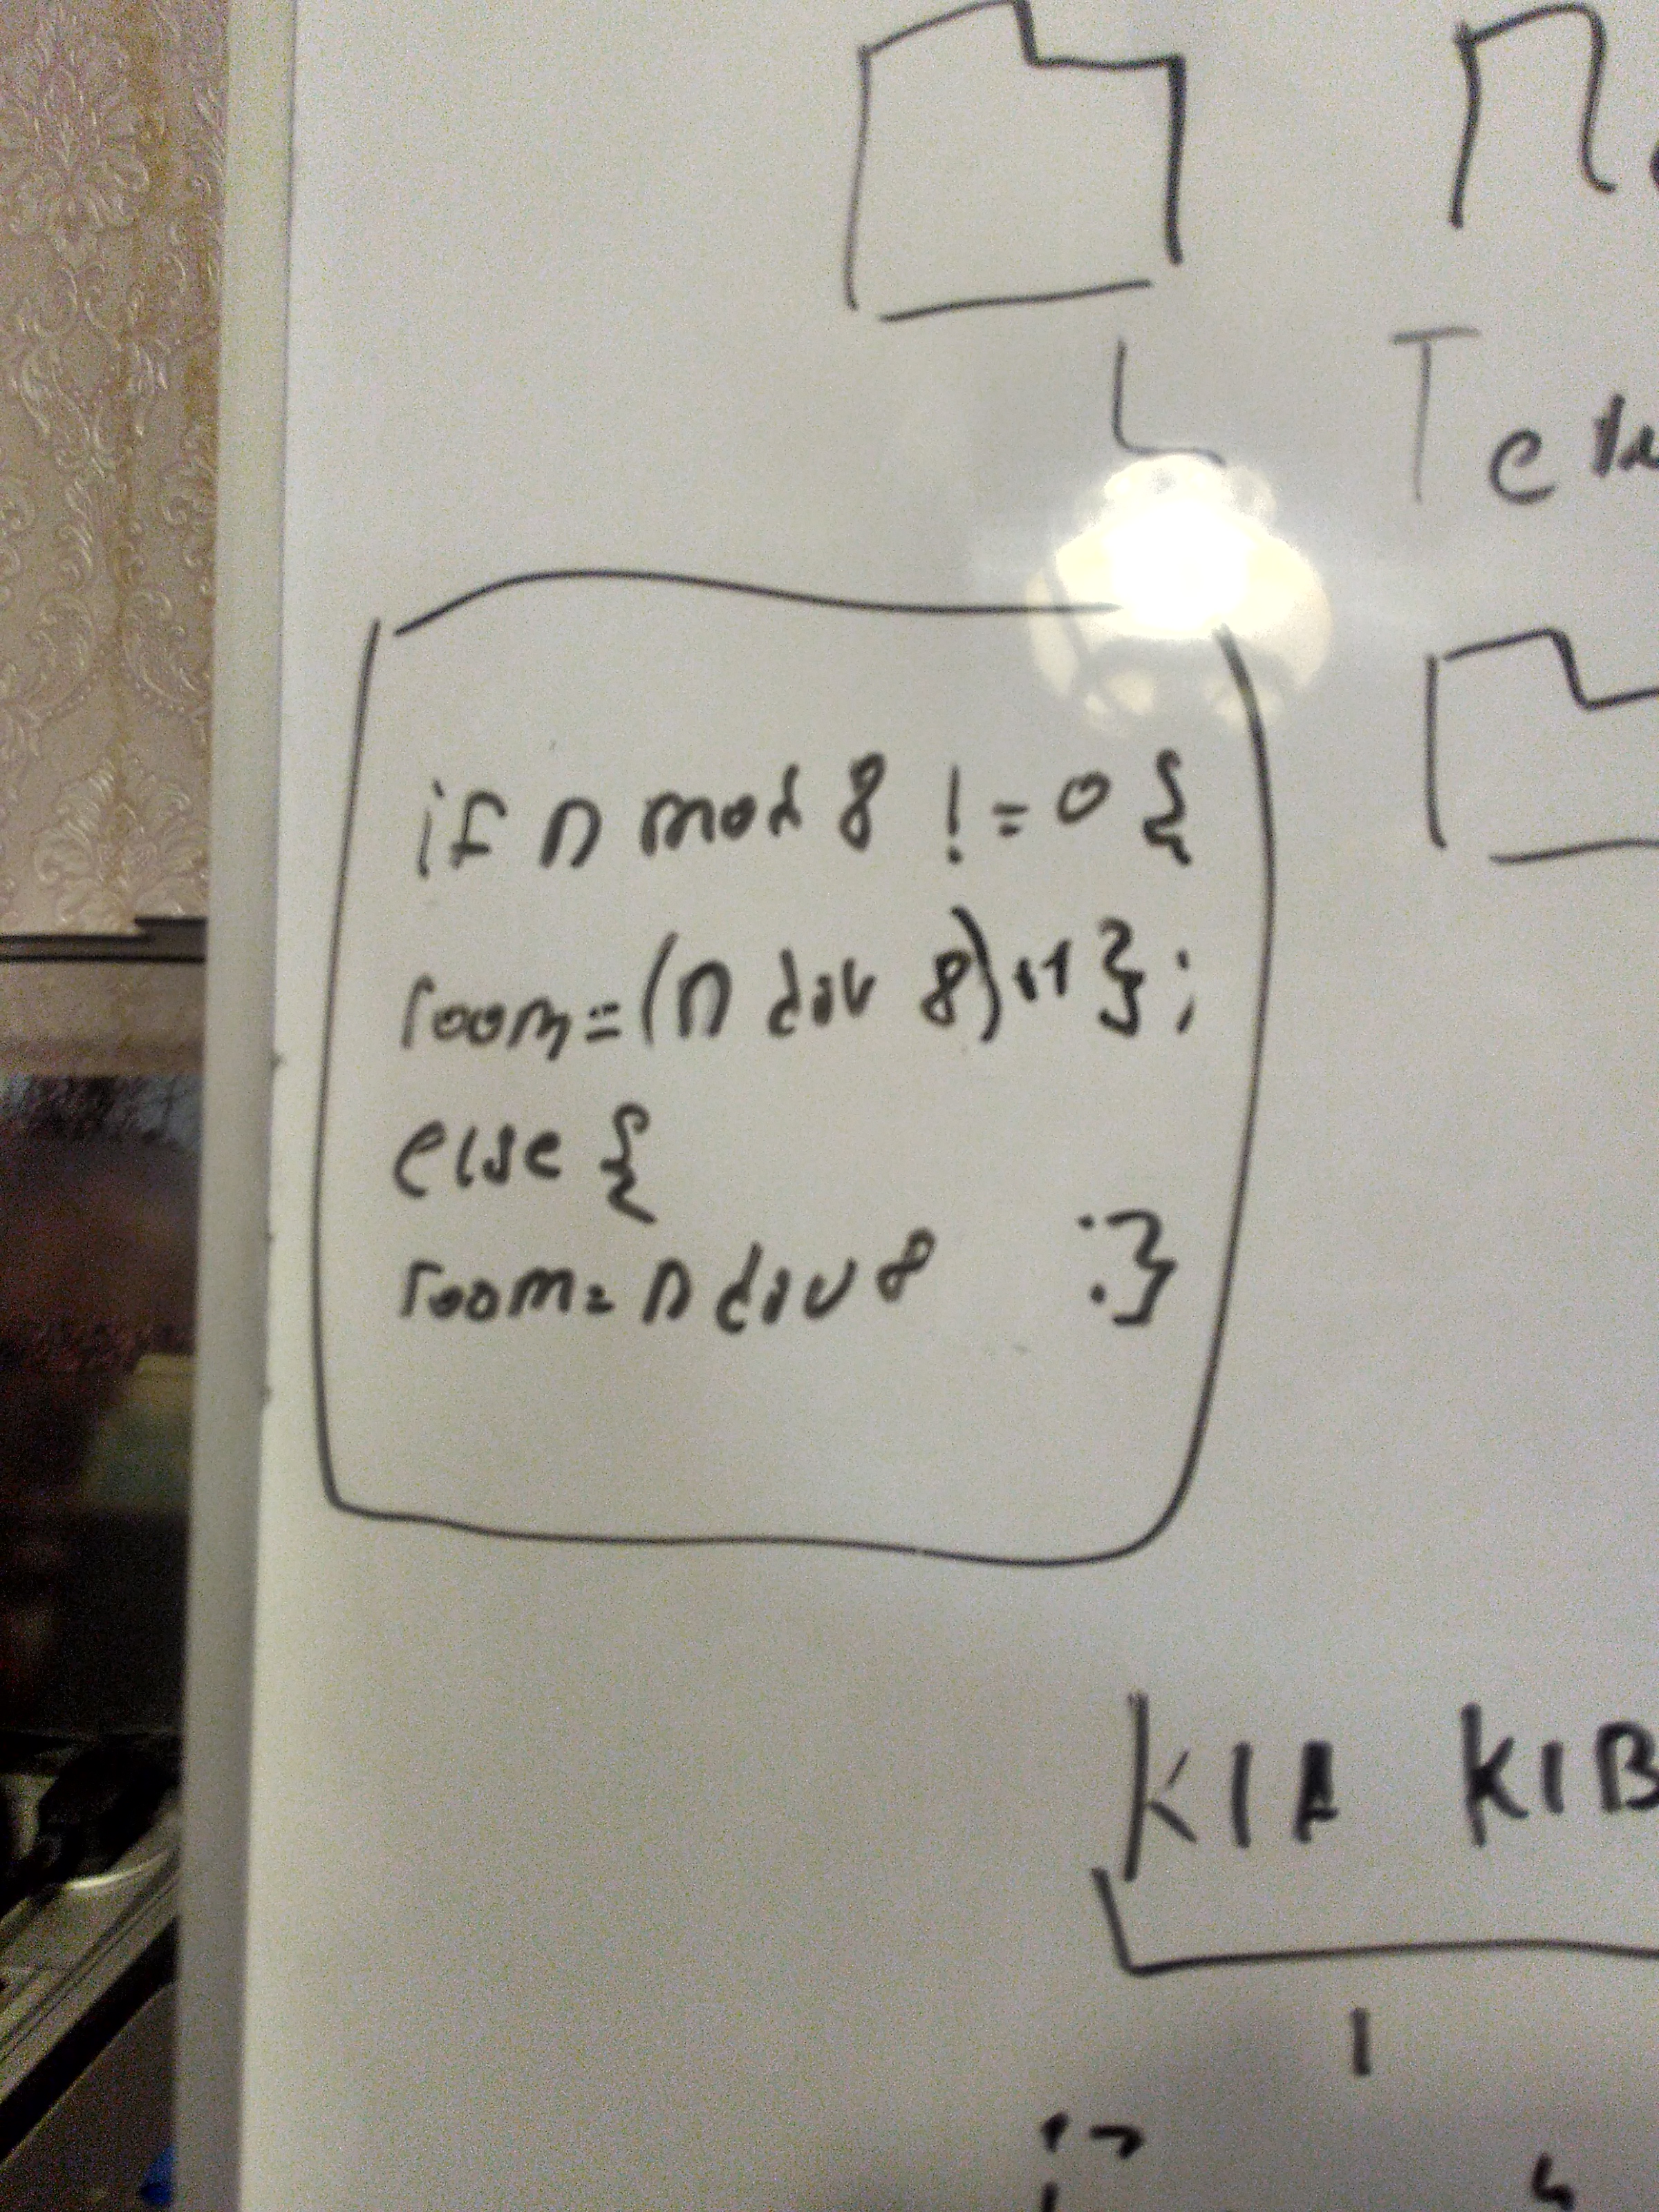 if n mod 8 != 0 {
room=(n div 8)+1};
else {
room= n div 8 ;}
K1A K1B
1